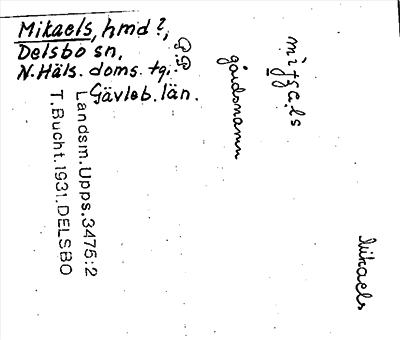 Mikaels, hmd?,
Delsbo sn,
N. Häls. doms. tg.
Gävleb. län.
Landsm. Upps. 3475:2
T. Bucht. 1931. DELSBO
gårdsnamn
Mikaels